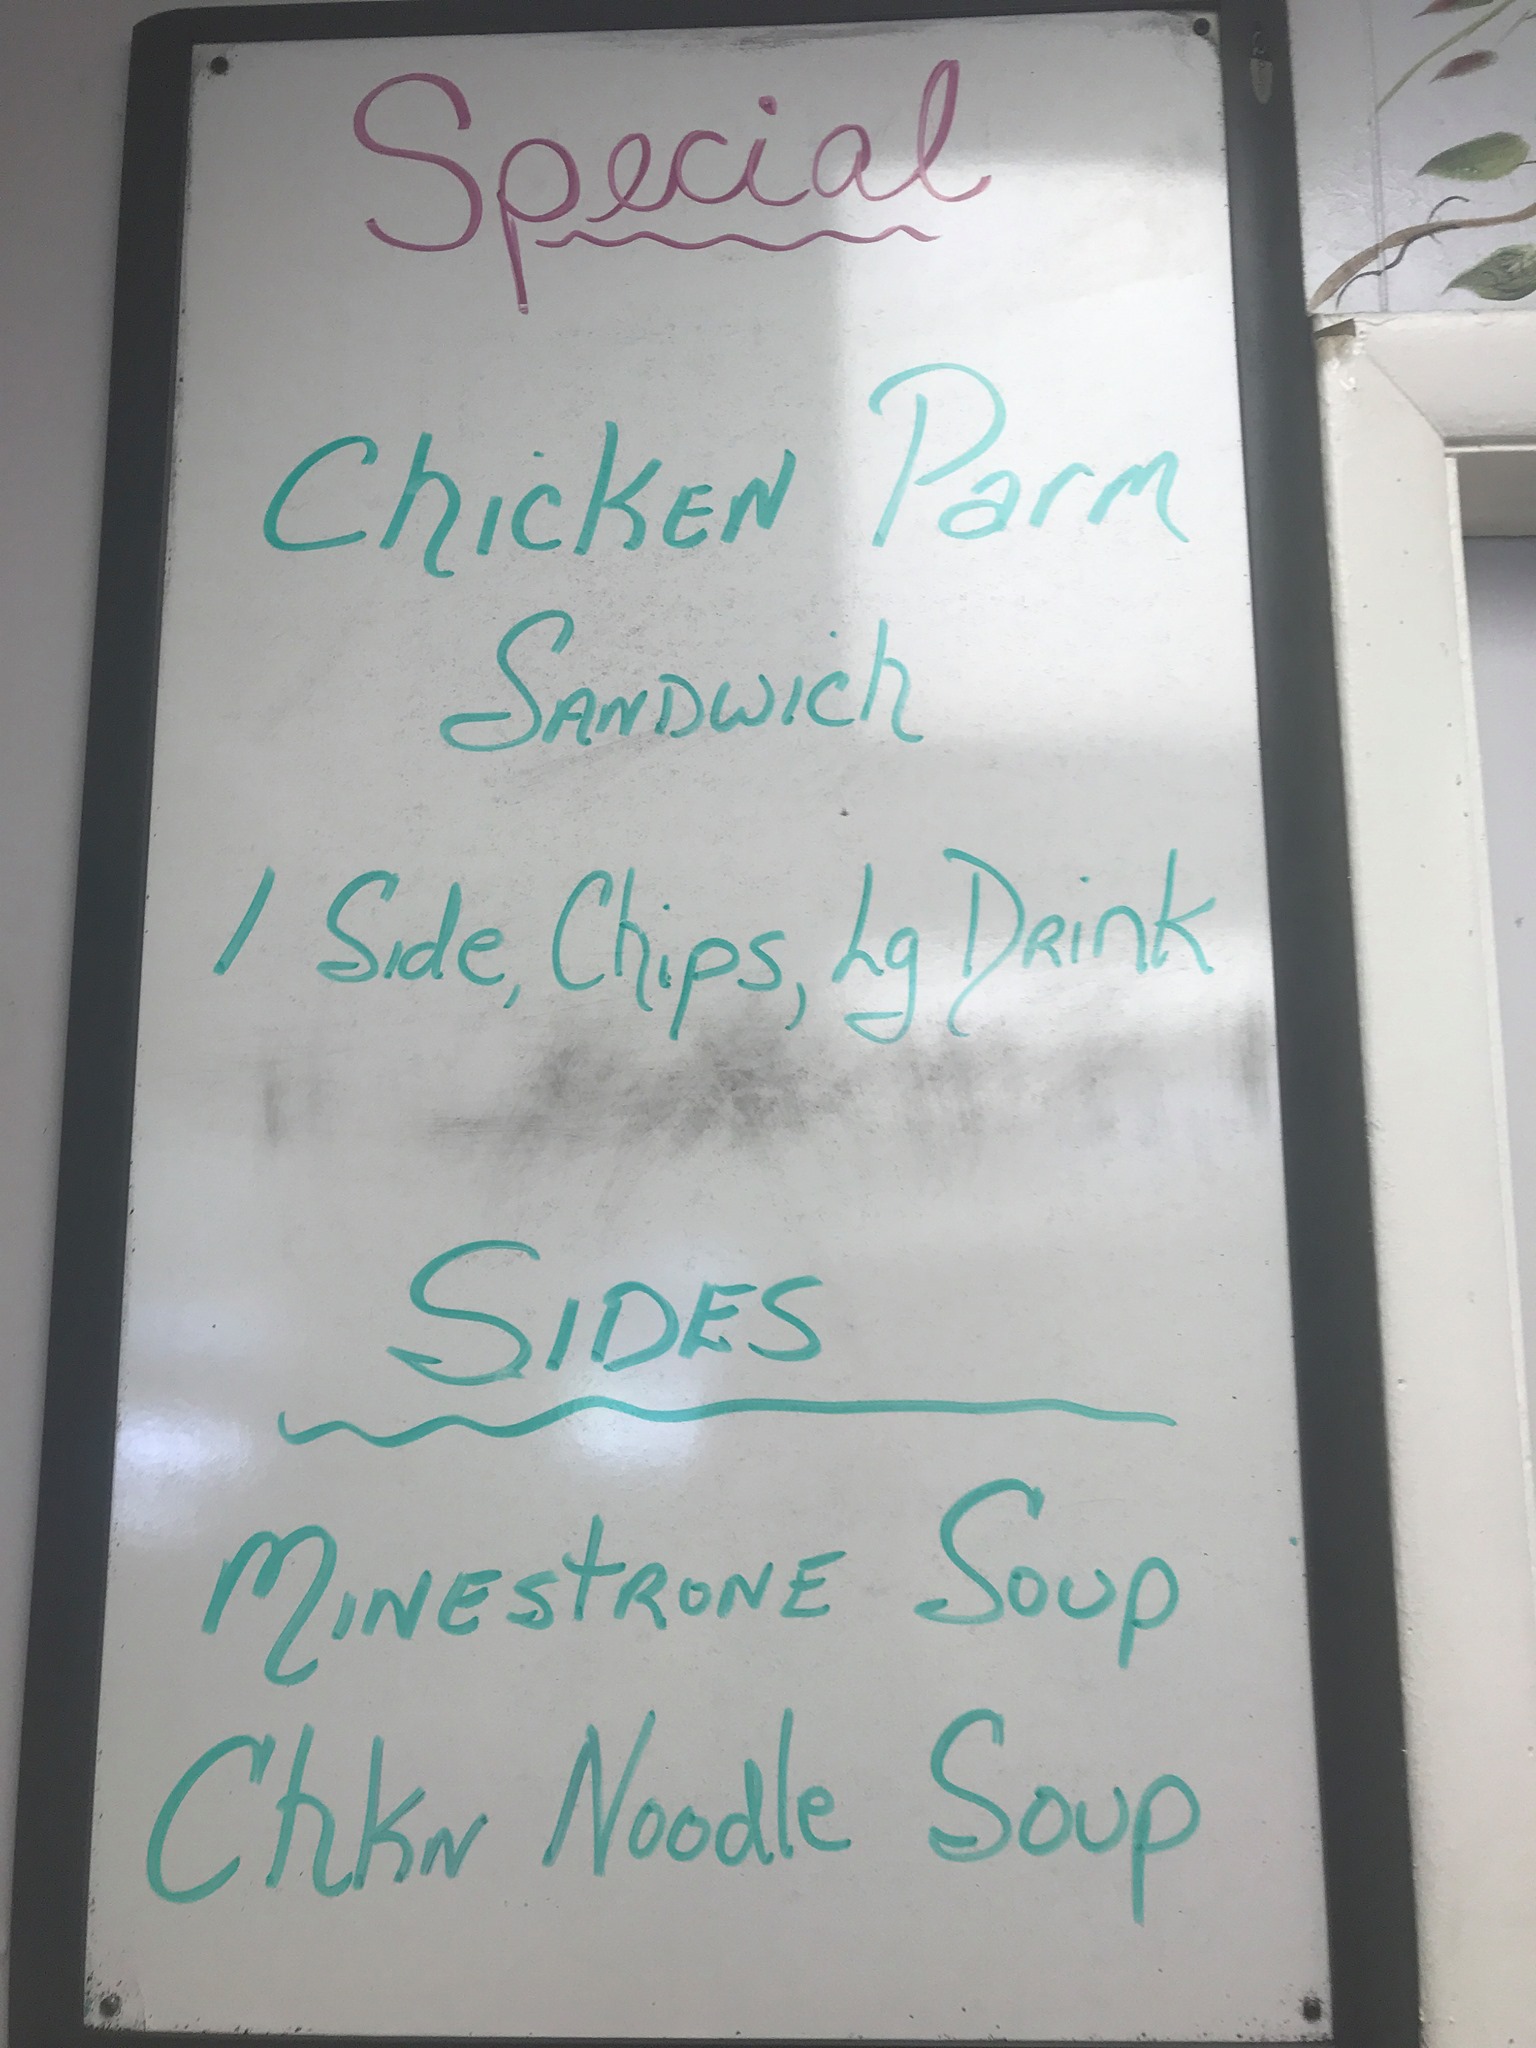 Special
Chicken Parm
Sandwich
1 Side, Chips, Lg Drink
SIDES
Minestrone Soup
Chkn Noodle Soup